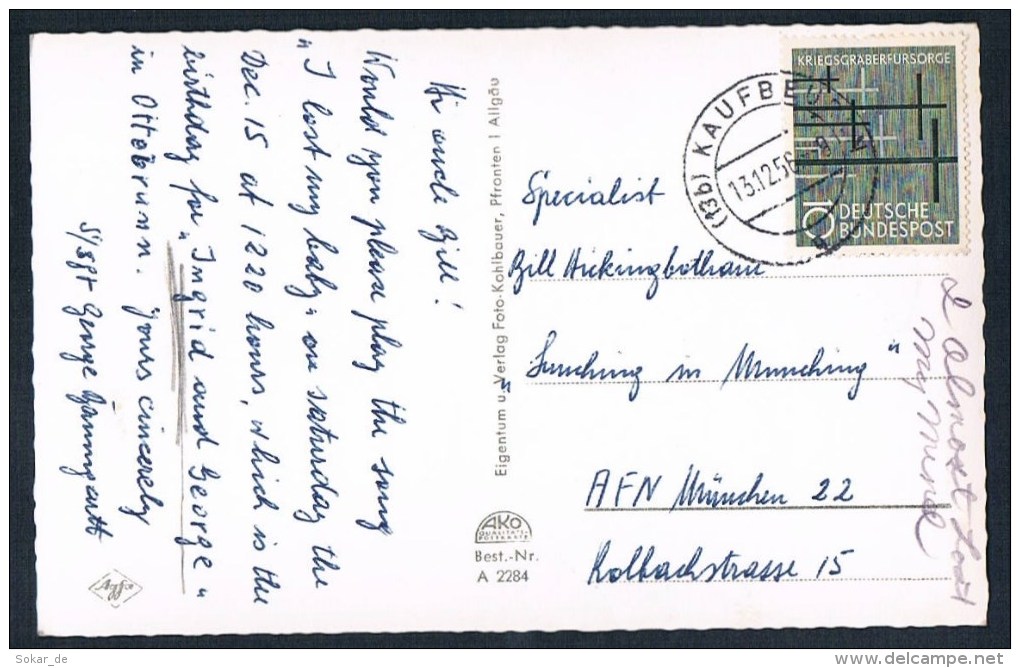 Hi uncle Bill!
Would you please play the song
"I lost my baby" on saturday the
Dec. 15 at 1220 hours, which is the
birthday for "Ingrid and George"
in Ottobrunn. Yours cincerely
S/sgt George
Eigentum u. Verlag Foto-Kohlbauer, Pfronten i Allgäu
AKO
QUALITÄTS-
POSTKARTE
Best.-Nr.
A 2284
Agfa
(13b) KAUFBE
13.12.56
KRIEGSGRÄBERFÜRSORGE
10
DEUTSCHE
BUNDESPOST
Specialist
Bill Hickingbotham
"Lunching in Munching"
AFN München 22
Kolbachstrasse 15
I almost Lost
my mind
Sokar_de
www.delcampe.net